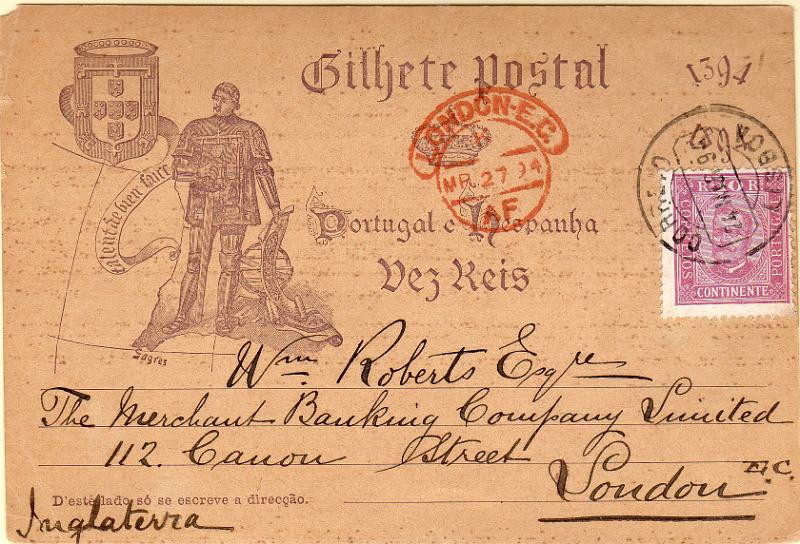 Bilhete Postal
1394
talent de bien faire
LONDON-E.C.
MR 27 94
AF
CORREIO
Portugal e Hespanha
Dez Reis
CONTINENTE
PORTUGAL
Sagres
Wm. Roberts Esqre
The Merchant Banking Company Limited
112. Canon Street
London E.C.
D'este lado só se escreve a direcção.
Inglaterra